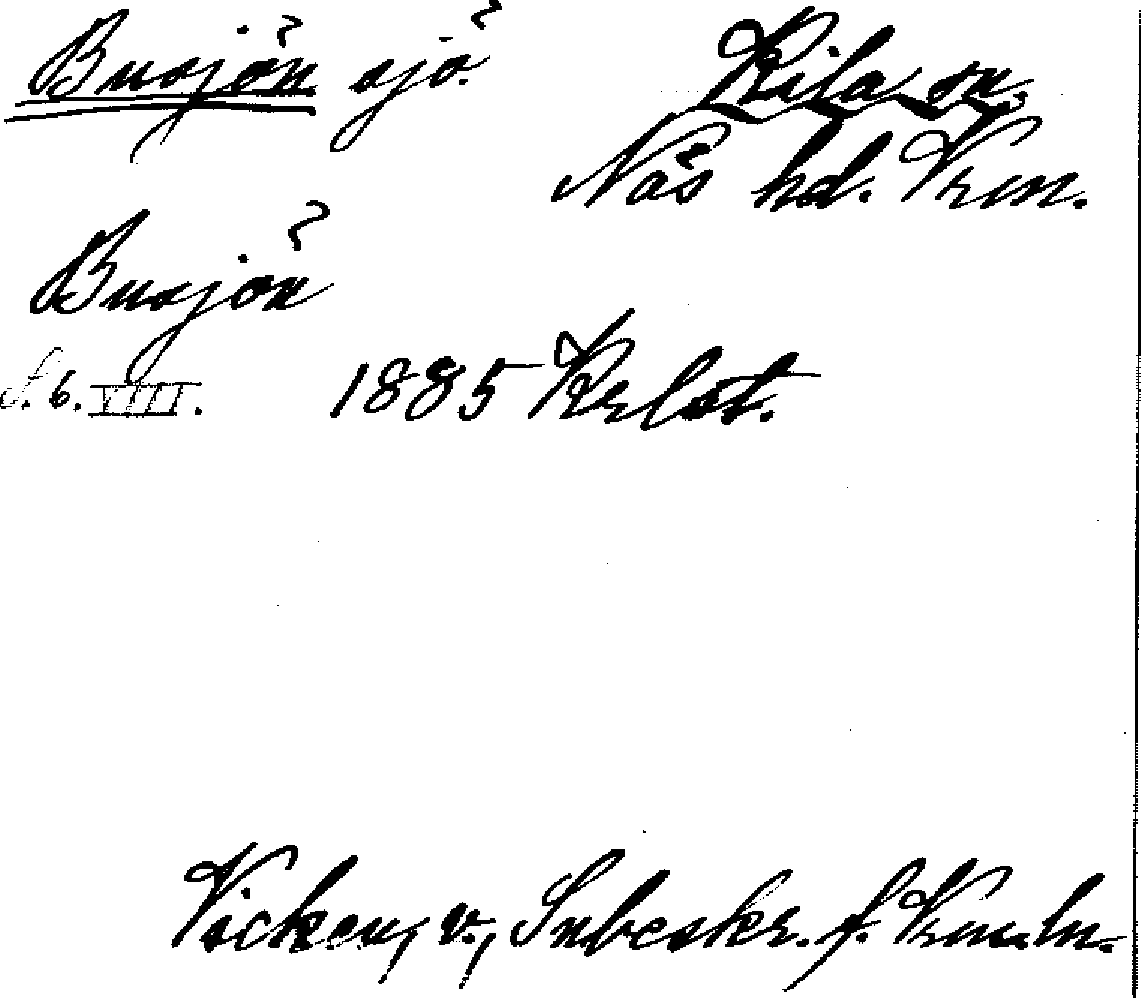 Busjön sjö.
Kila sn.
Näs hd. Vrm.
Busjön
f. 6. VIII. 1885 Krlst.
Vicken, v., Snbeskr. f. Vrm. ln.